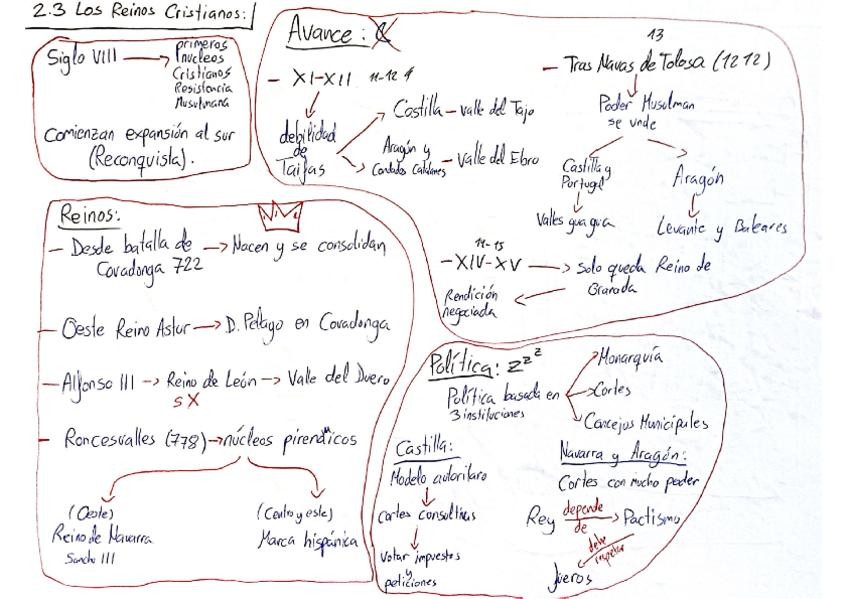 2.3 Los Reinos Cristianos:
Siglo VIII → primeros
núcleos
Cristianos
Resistencia
Musulmana
Comienzan expansión al sur
(Reconquista).
Avance:
- XI-XII 11-12
debilidad
de
Taifas
Castilla - valle del Tajo
Aragón y
Condados Catalanes - Valle del Ebro
13
- Tras Navas de Tolosa (1212)
Poder Musulman
se unde
Castilla y
Portugal
Valles guagua
Aragón
Levante y Baleares
14-15
- XIV-XV → Solo queda Reino de
Granada
Rendición
negociada
Reinos:
- Desde batalla de → Nacen y se consolidan
Covadonga 722
- Oeste Reino Astur → D. Pelayo en Covadonga
- Alfonso III → Reino de León → Valle del Duero
s X
- Roncesvalles (778) → núcleos pirenaicos
(Oeste)
Reino de Navarra
Sancho III
(Centro y este)
Marca hispánica
Política: zzz
Política basada en
3 instituciones
Monarquía
Cortes
Concejos Municipales
Castilla:
Modelo autoritaro
Cortes consultivas
Votar impuestos
y
peticiones
Navarra y Aragón:
Cortes con mucho poder
Rey depende de → Pactismo
debe
respetar
fueros